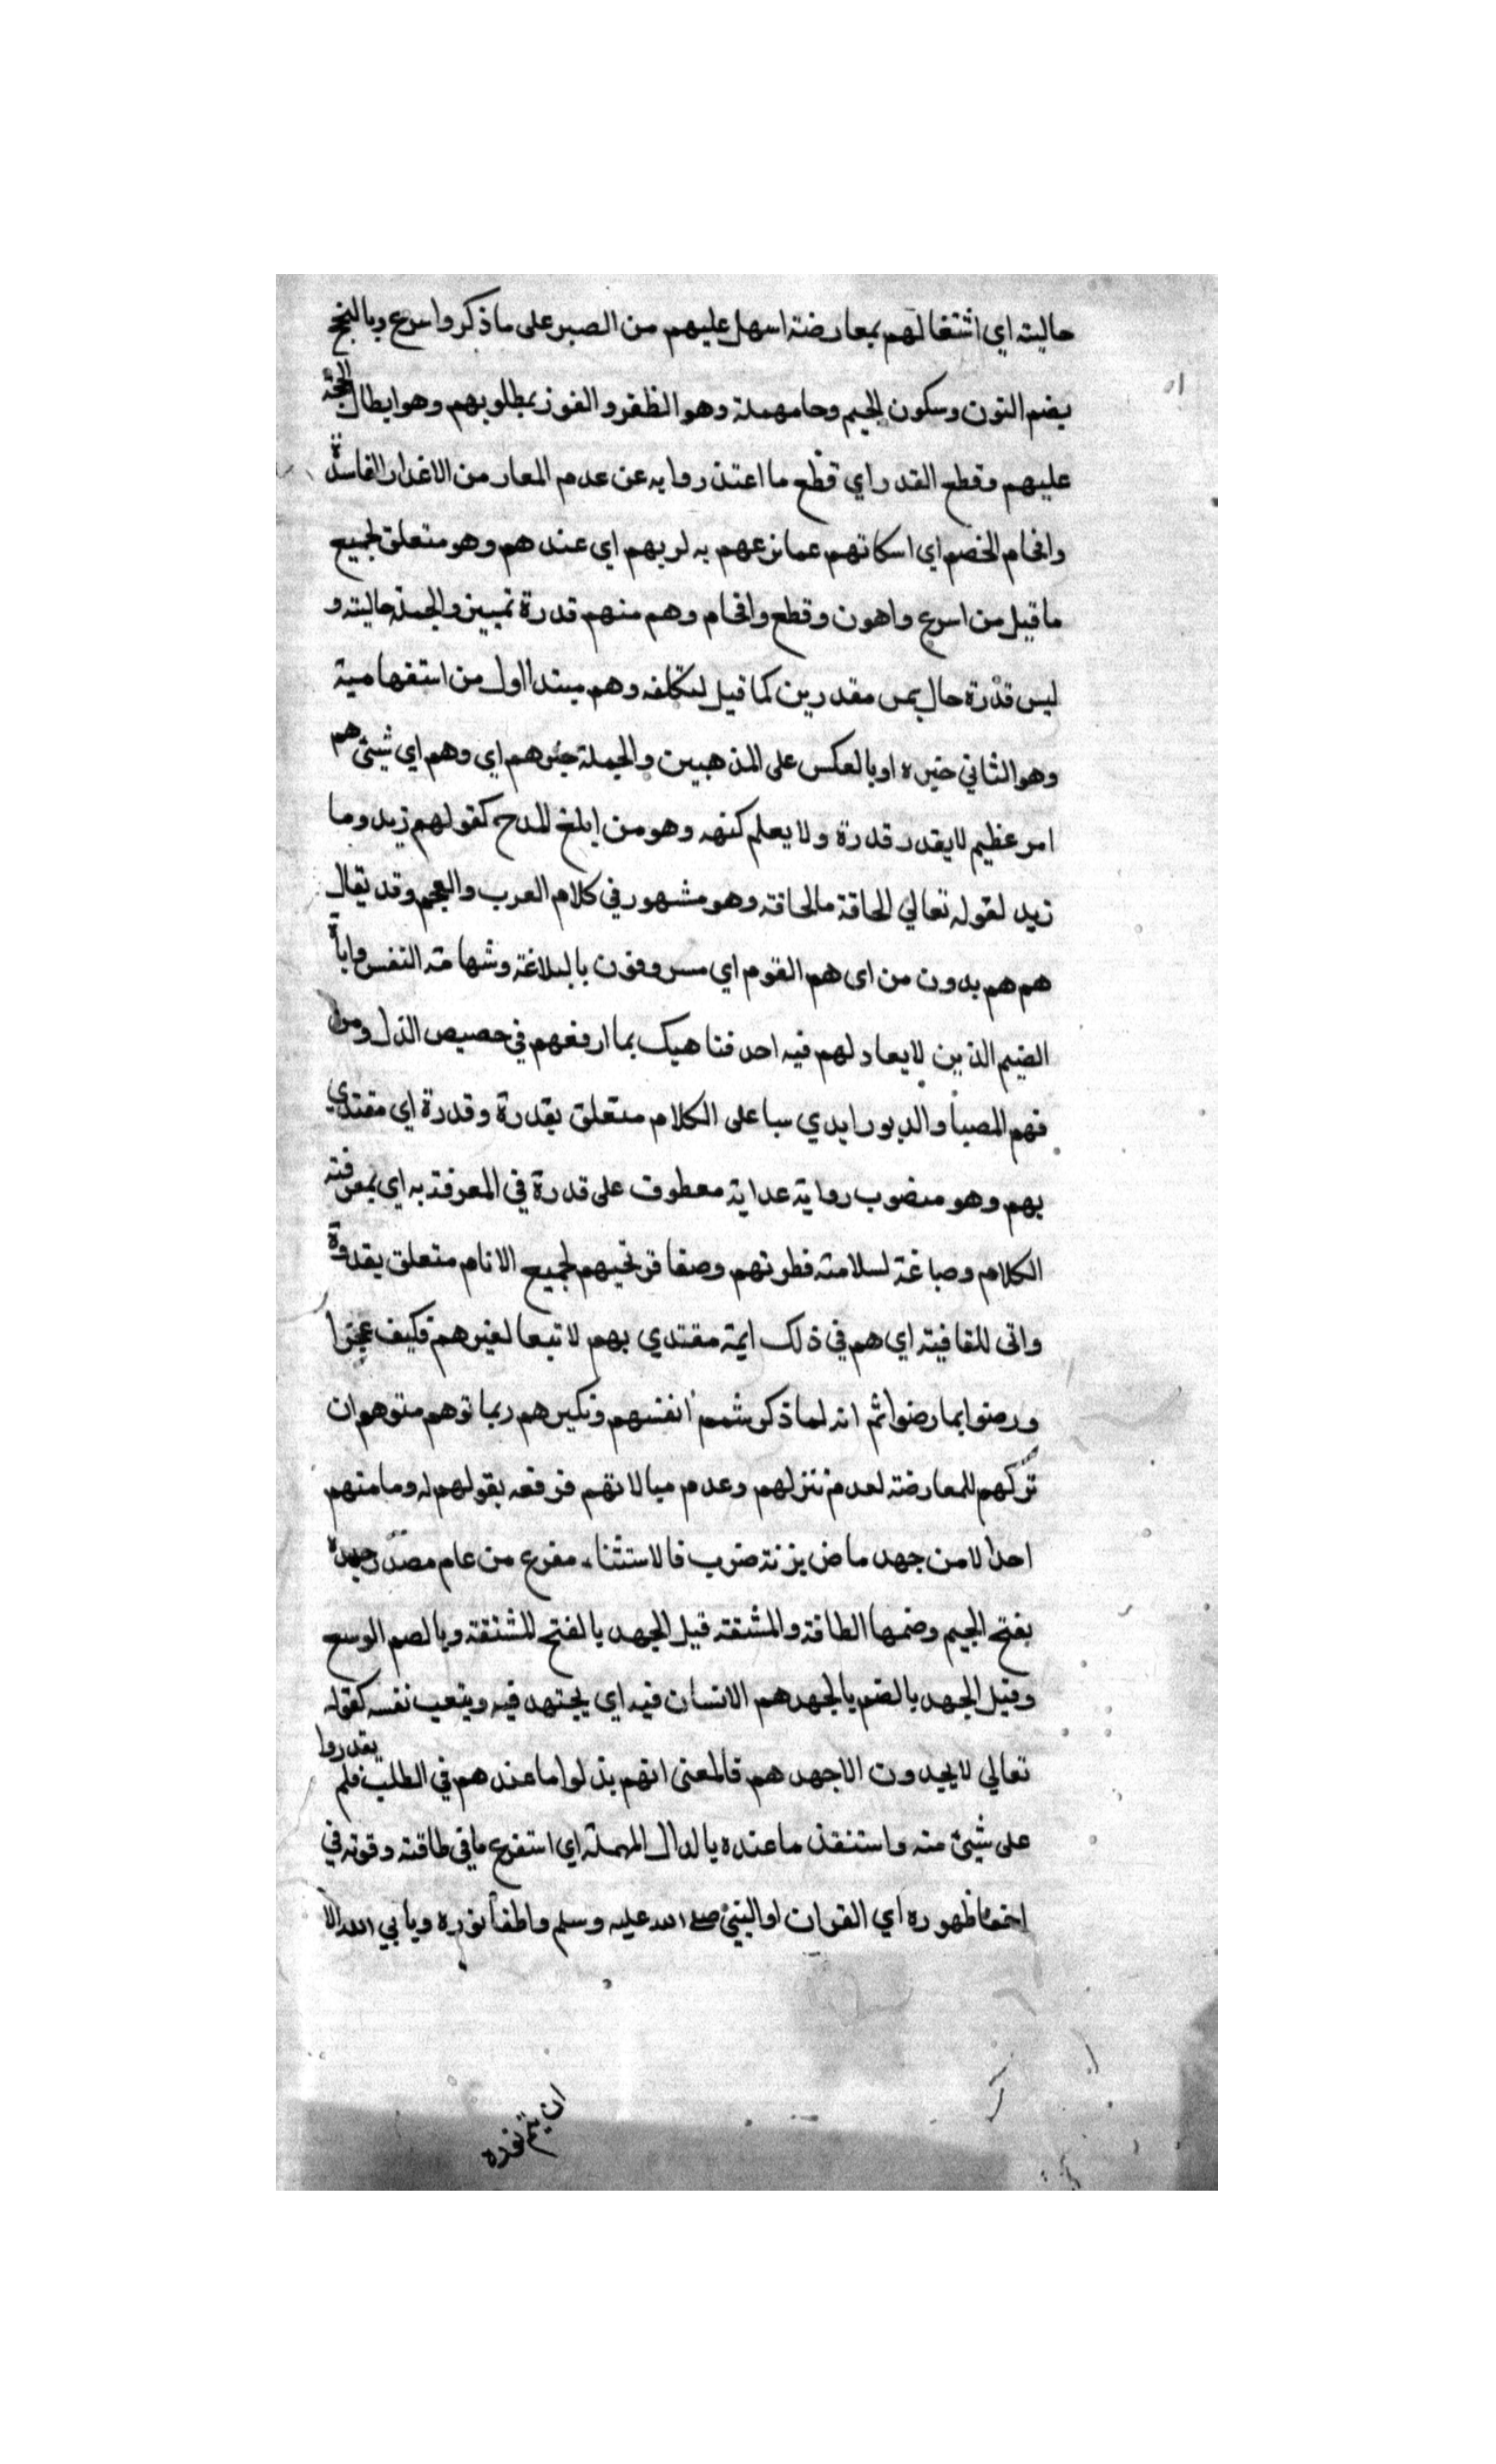 حالية اي اشتغالهم بمعارضته اسهل عليهم من الصبر على ما ذكر واسرع وبالنجح
بضم النون وسكون الجيم وحا مهملة وهو الظفر والفوز بمطلوبهم وهو ابطال الحجة
عليهم وقطع القدر اي قطع ما اعتذروا به عن عدم المعار من الاغدار الفاسدة
وافحام الخصم اي اسكاتهم عما نزعهم به لربهم اي عندهم وهو متعلق لجميع
ما قيل من اسرع واهون وقطع وافحام وهم منهم قدرة تمييز والجملة حالية و
ليس قدرة حال بمس مقدرين كما قيل لتكلفه وهم مبتدا اول من استفهامية
وهو الثاني خبره او بالعكس على المذهبين والجملة خبرهم اي وهم اي شيئ هم
امر عظيم لا يقدر قدرة ولا يعلم كنهه وهو من ابلغ المدح كقولهم زيد وما
زيد لقوله تعالي الحاقة مالحاقة وهو مشهور في كلام العرب والعجم وقد يقال
هم هم بدون من اى هم القوم اي مسروفون بالبلاغة وشهامة النفس واباة
الضيم الذين لا يعاد لهم فيه احد فناهيك بما ارفعهم في حصيص الذل ومن
فهم المصبا والدبور ايدي سبا على الكلام متعلق بقدرة وقدرة اي مقتدي
بهم وهو منصوب رواية عداية معطوف على قدرة في المعرفة به اي بمعرفة
الكلام وصباغة لسلامة فطرتهم وصفا قرنحيهم لجميع الانام متعلق بقدوة
واتى للقافية اي هم في ذلك ايمة مقتدي بهم لا تبعا لغيرهم فكيف عجزا
ورضوا بما رضوا ثم انه لما ذكر شمم انفسهم وتكبرهم ربما توهم متوهم ان
تركهم للمعارضة لعدم تنزلهم وعدم مبالاتهم فرفعه بقولهم له وما منهم
احدا لا من جهد ماض بزنة ضرب فالاستثناء مفرع من عام مصدر جهدة
بفتح الجيم وضمها الطاقة والمشقة قيل الجهد بالفتح المشقة وبالصم الوسع
وقيل الجهد بالضم يالجهدهم الانسان فيه اي يجتهد فيه ويتعب نفسه كقوله
تعالي لا يجدون الاجهدهم فالمعنى انهم بذلوا ما عندهم في الطلب فلم يقدروا
على شيئ منه واستنفذ ما عنده بالدال المهملة اي استفرع ما في طاقته وقوته في
اخفا ظهوره اي القران او النبي صلى الله عليه وسلم واطفا نوره ويابي الله الا
ان يتم نوره